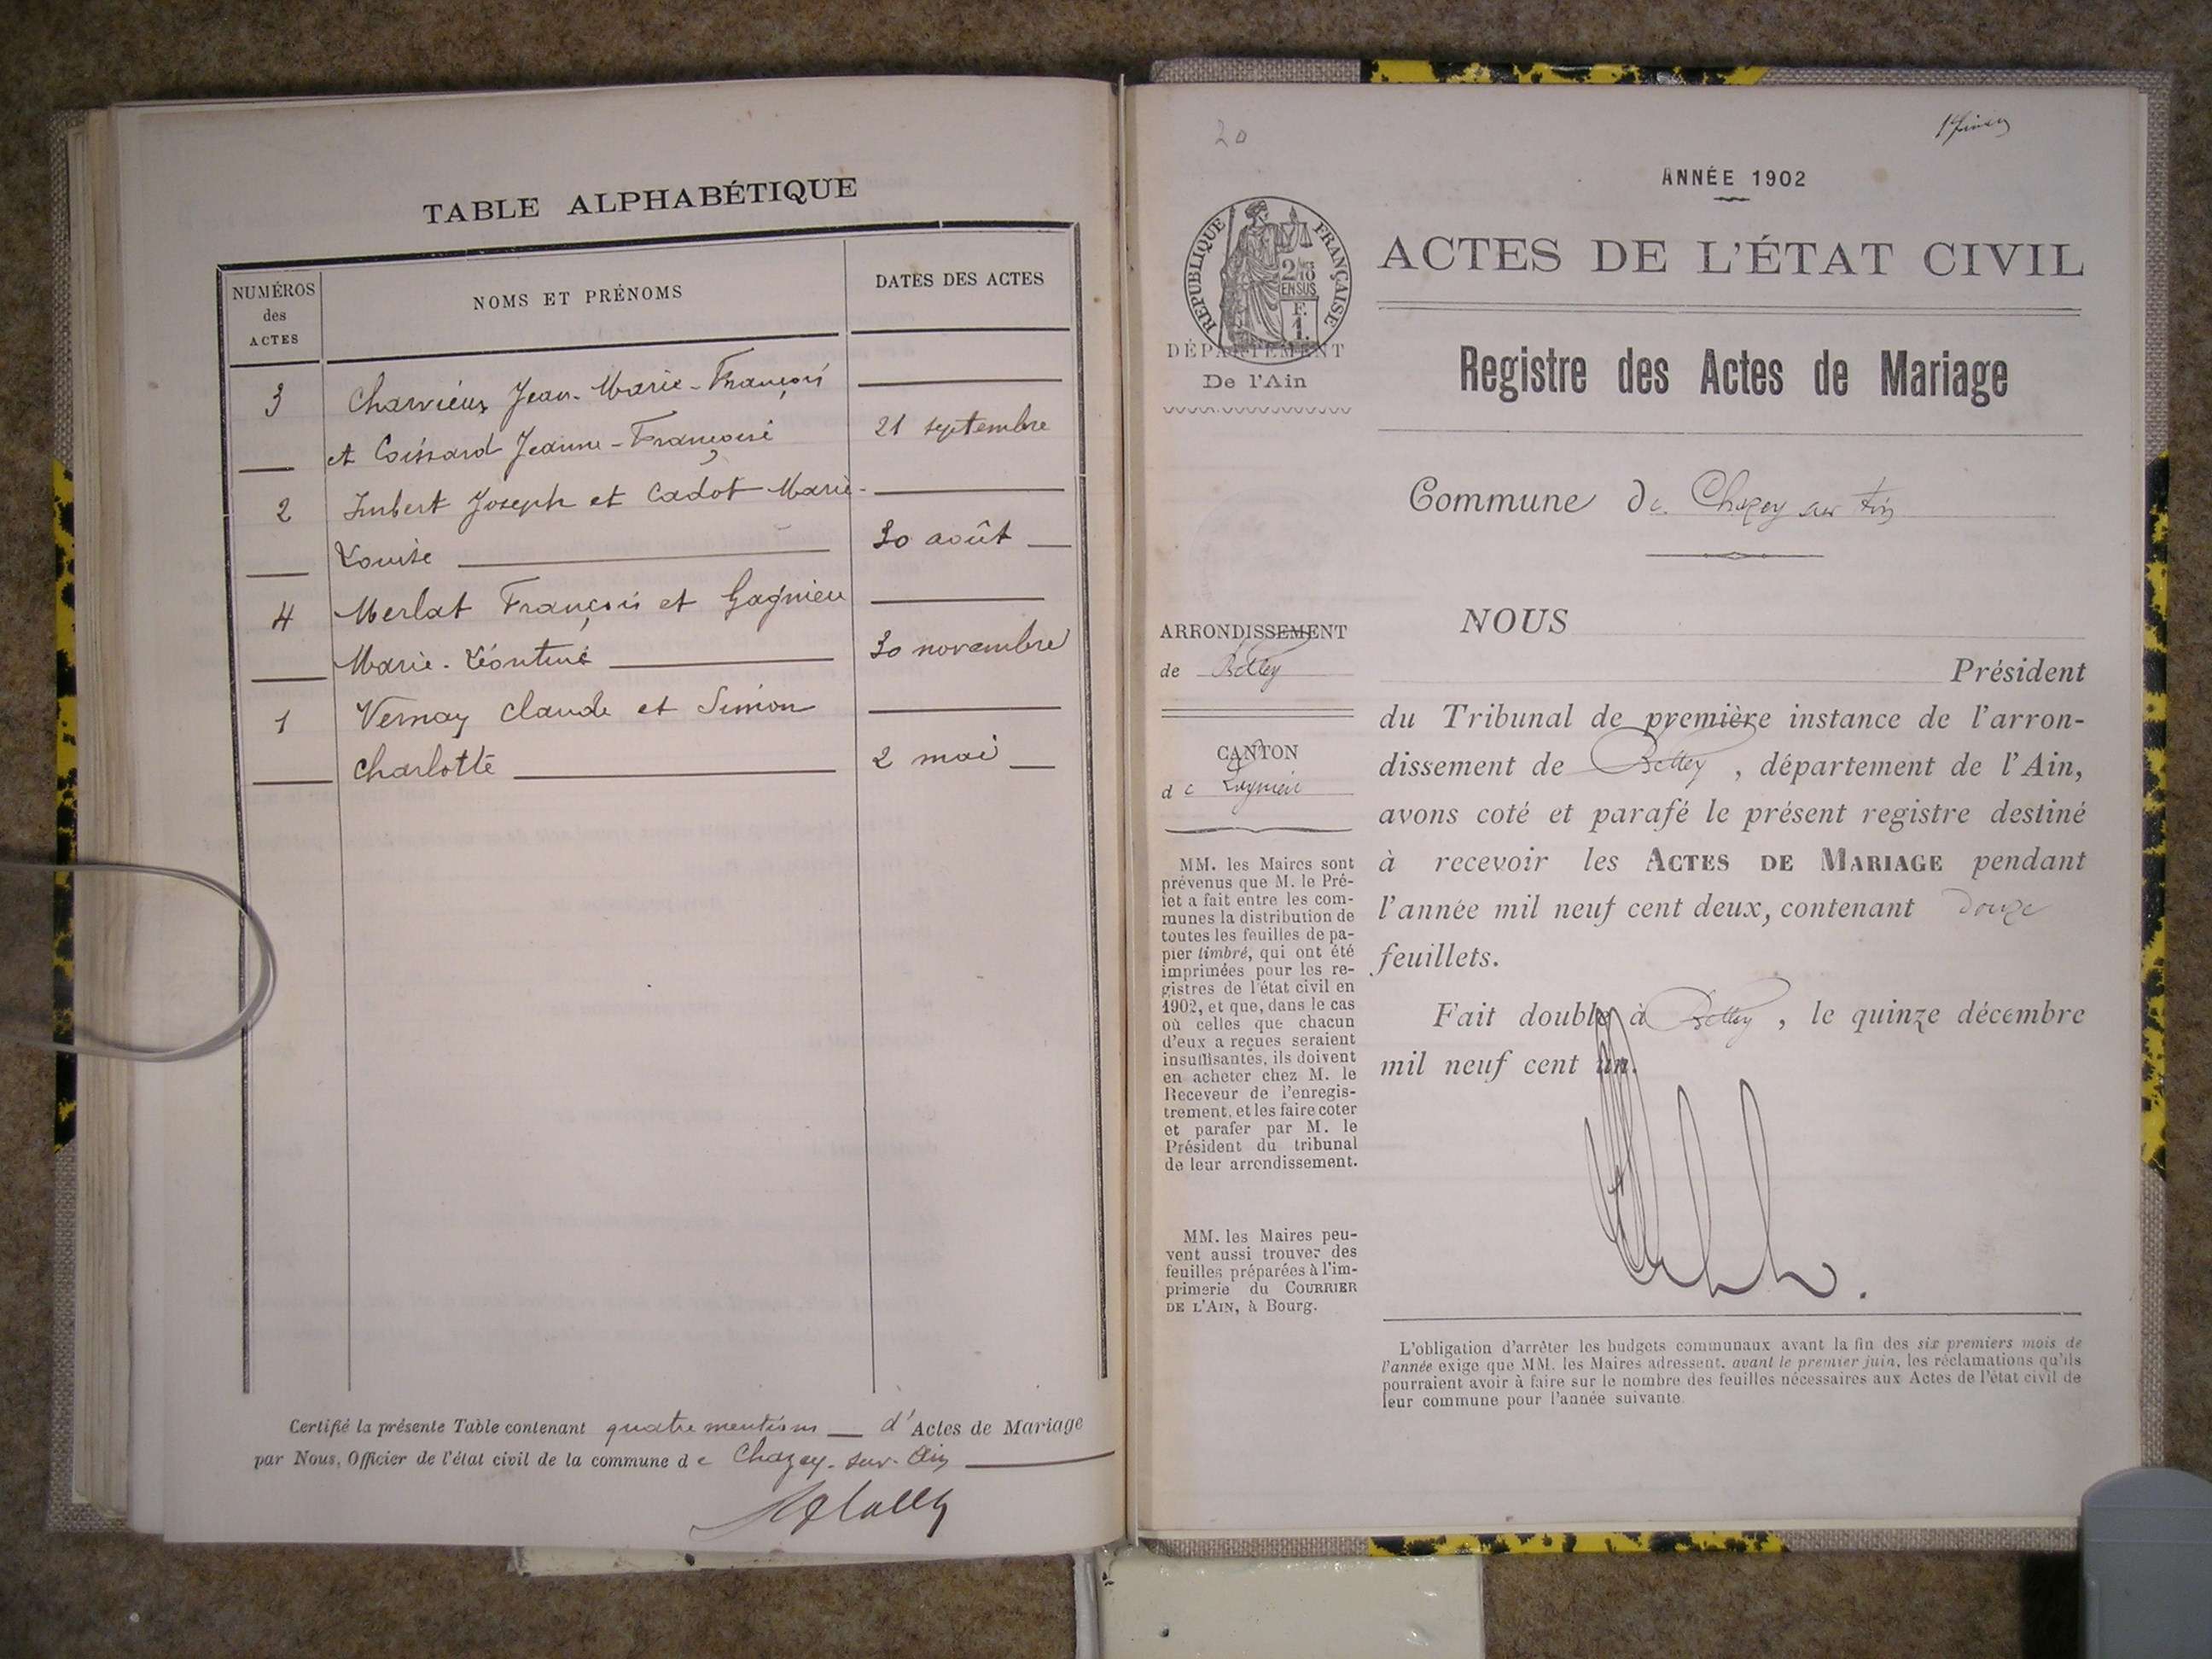 TABLE ALPHABÉTIQUE
NUMÉROS
des
ACTES
NOMS ET PRÉNOMS
DATES DES ACTES
3 Charvieux Jean-Marie-François
et Coissard Jeanne-Françoise 21 septembre
2 Imbert Joseph et Cadot Marie-
Louise 30 août
4 Merlat François et Gagnieu
Marie-Léontine 30 novembre
1 Vernay Claude et Simon
Charlotte 2 mai
Certifié la présente Table contenant quatre mentions d'Actes de Mariage
par Nous, Officier de l'état civil de la commune de Chazey-sur-Ain
20
ANNÉE 1902
RÉPUBLIQUE FRANÇAISE
ENSUS
F.
1.
DÉPARTEMENT
De l'Ain
ARRONDISSEMENT
de Belley
CANTON
de Lagnieu
MM. les Maires sont
prévenus que M. le Pré-
fet a fait entre les com-
munes la distribution de
toutes les feuilles de pa-
pier timbré, qui ont été
imprimées pour les re-
gistres de l'état civil en
1902, et que, dans le cas
où celles que chacun
d'eux a reçues seraient
insuffisantes, ils doivent
en acheter chez M. le
Receveur de l'enregis-
trement, et les faire coter
et parafer par M. le
Président du tribunal
de leur arrondissement.
MM. les Maires peu-
vent aussi trouver des
feuilles préparées à l'im-
primerie du COURRIER
DE L'AIN, à Bourg.
ACTES DE L'ÉTAT CIVIL
Registre des Actes de Mariage
Commune de Chazey sur Ain
NOUS
Président
du Tribunal de première instance de l'arron-
dissement de Belley, département de l'Ain,
avons coté et parafé le présent registre destiné
à recevoir les ACTES DE MARIAGE pendant
l'année mil neuf cent deux, contenant douze
feuillets.
Fait double à Belley, le quinze décembre
mil neuf cent un.
L'obligation d'arrêter les budgets communaux avant la fin des six premiers mois de
l'année exige que MM. les Maires adressent, avant le premier juin, les réclamations qu'ils
pourraient avoir à faire sur le nombre des feuilles nécessaires aux Actes de l'état civil de
leur commune pour l'année suivante.